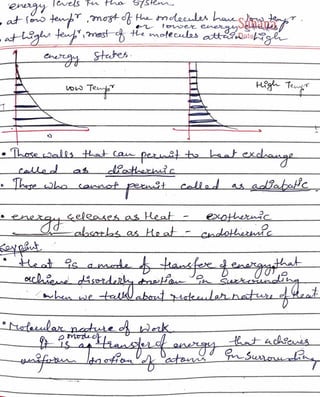 energy levels in the system.
• at low tempr, most of the molecules have low tempr.
or lower energy
• at high tempr, most of the molecules attain high
energy states.
Low Tempr
High Tempr
• Those walls that can permit to heat exchange
called as diathermic
• Those who cannot permit called as adiabatic.
• energy releases as Heat - exothermic
absorbs as Heat - endothermic
Keypoint
• Heat is a mode of transfer of energy, that
achieve disorderly motion in surrounding
when we talk about molecular nature of Heat
• Molecular nature of Work
It is a mode of transfer of energy that achieves
uniform motion of atoms in surrounding